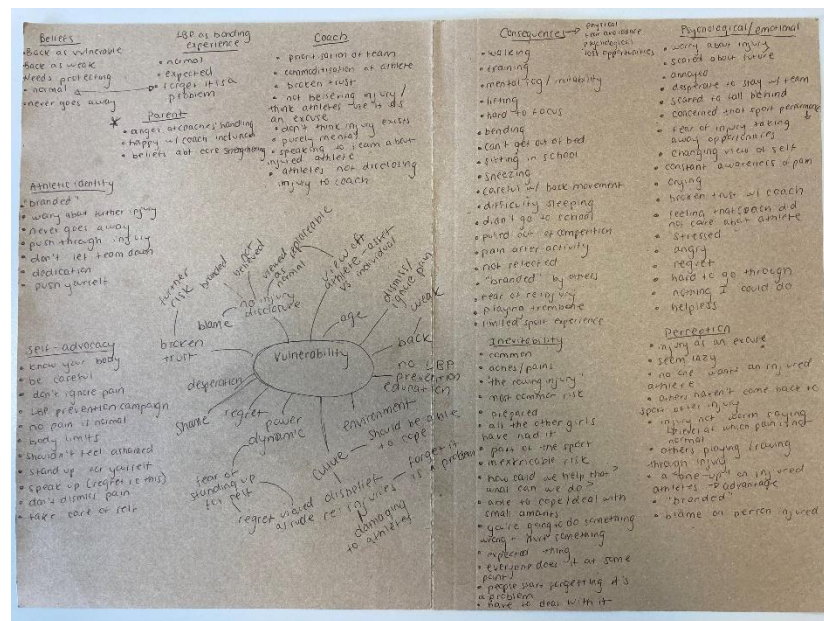 Beliefs
• Back as vulnerable
Back as weak
Needs protecting
• normal
• never goes away
LBP as bonding
experience
• normal
• expected
• forget it is a
problem
Parent
• anger at coaches handling
• happy w/ coach
• beliefs abt core strengthening
Coach
• prioritisation of team
• commoditisation of athlete
• broken trust
• not believing injury /
think athletes use it as
an excuse
• don't think injury exists
• purely mental
• speaking to team about
injured athlete
• athletes not disclosing
injury to coach
Athletic identity
• "branded"
• worry about further injury
• never goes away
• push through injury
• don't let team down
• dedication
• push yourself
Self-advocacy
• know your body
• be careful
• don't ignore pain
• LBP prevention campaign
• no pain is normal
• body limits
• shouldn't feel ashamed
• stand up for yourself
• speak up (regret if this)
• don't dismiss pain
• take care of self
Vulnerability
further
risk
branded
not
believed
blame
no injury
disclosure
viewed
as
normal
replaceable
view of
athlete - asset
vs individual
age
dismiss/
ignore pain
weak
back
no LBP
prevention
education
environment
should be able
to cope
culture
forget it
is a problem
disbelief
re: injuries
damaging
to athletes
power
dynamic
fear of
standing up
for self
regret
viewed
as rude
regret
shame
desperation
broken
trust
Consequences →
physical
psychological
loss opportunities
• walking
• training
• mental fog / irritability
• lifting
• hard to focus
• bending
• can't get out of bed
• sitting in school
• sneezing
• careful w/ back movement
• difficulty sleeping
• didn't go to school
• pulled out of competition
• pain after activity
• not selected
• "branded" by others
• fear of reinjury
• playing trombone
• limited sport experience
Inevitability
• common
• aches/pains
• "the rowing injury"
• most common risk
• prepared
• all the other girls
have had it
• part of the sport
• inextricable risk
• how could we help that?
what can we do?
• able to cope/deal with
small amounts
• you're going to do something
wrong + hurt something
• expected thing
• everyone does it at some
point
• people start forgetting it's
a problem
• have to deal with it
Psychological/emotional
• worry about injury
• scared about future
• annoyed
• desperate to stay w/ team
• scared to fall behind
• concerned that sport performance ↓
• fear of injury taking
away opportunities
• changing view of self
• constant awareness of pain
• crying
• broken trust w/ coach
• feeling that coach did
not care about athlete
• stressed
• angry
• regret
• hard to go through
• nothing I could do
• helpless
Perception
• injury as an excuse
• seem lazy
• no one wants an injured
athlete
• others haven't come back to
sport after injury
• injury not worth saying
• level at which pain is not
normal
• others playing/rowing
through injury
• a "one-up" on injured
athletes → advantage
• "branded"
• blame on person injured